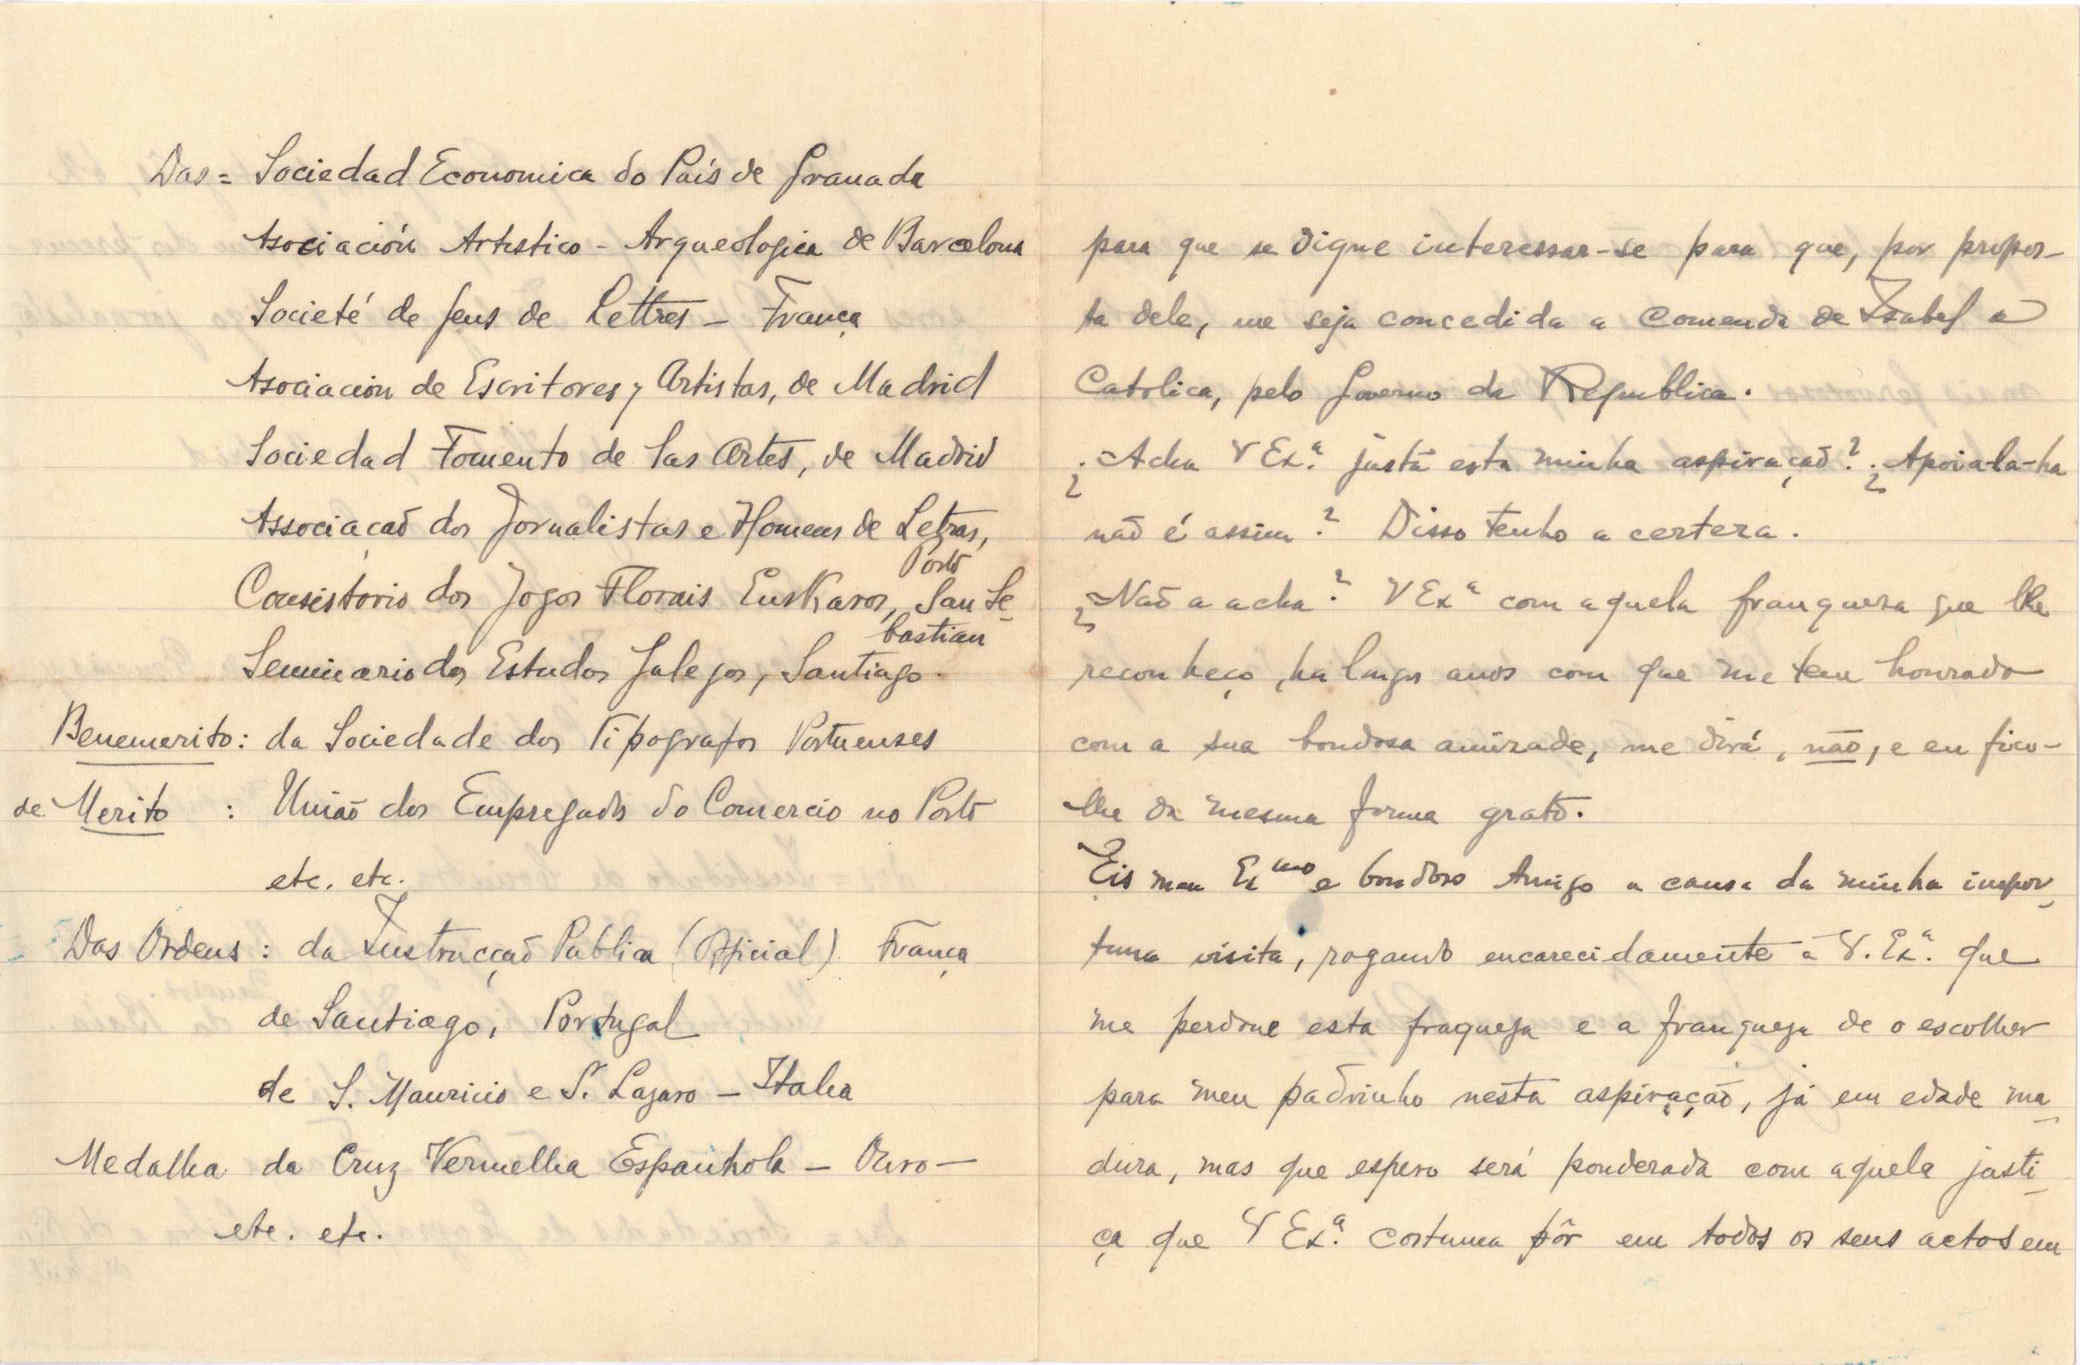 Das = Sociedad Economica do País de Granada
Asociación Artistico - Arqueologica de Barcelona
Societé de Gens de Lettres - França
Asociación de Escritores y Artistas, de Madrid
Sociedad Fomento de las Artes, de Madrid
Associação dos Jornalistas e Homens de Letras,
Porto
Consistorio dos Jogos Florais Euskaros, San Se-
bastian
Seminario dos Estudos Galegos, Santiago.
Benemerito: da Sociedade dos Tipografos Portuenses
de Merito : União dos Empregados do Comercio no Porto
etc. etc.
Das Ordens : da Instrucção Publica (Oficial) França
de Santiago, Portugal
de S. Mauricio e S. Lazaro - Italia
Medalha da Cruz Vermelha Espanhola - Ouro -
etc. etc.
para que se digne interessar-se para que, por propos-
ta dele, me seja concedida a Comenda de Isabel a
Catolica, pelo Governo da Republica.
¿Acha V Exª. justa esta minha aspiração? ¿Apoia-la-ha
não é assim? Disso tenho a certeza.
¿Não a acha? V Exª com aquela franqueza que lhe
reconheço, ha longos anos com que me tem honrado
com a sua bondosa amizade, me dirá, não, e eu fico-
lhe da mesma forma grato.
Eis meu Exmo e bondoso Amigo a causa da minha impor-
tuna visita, rogando encarecidamente a V. Exª. que
me perdoe esta fraqueza e a franqueza de o escolher
para meu padrinho nesta aspiração, já em edade ma-
dura, mas que espero será ponderada com aquela justi-
ça que V Exª. costuma pôr em todos os seus actos em